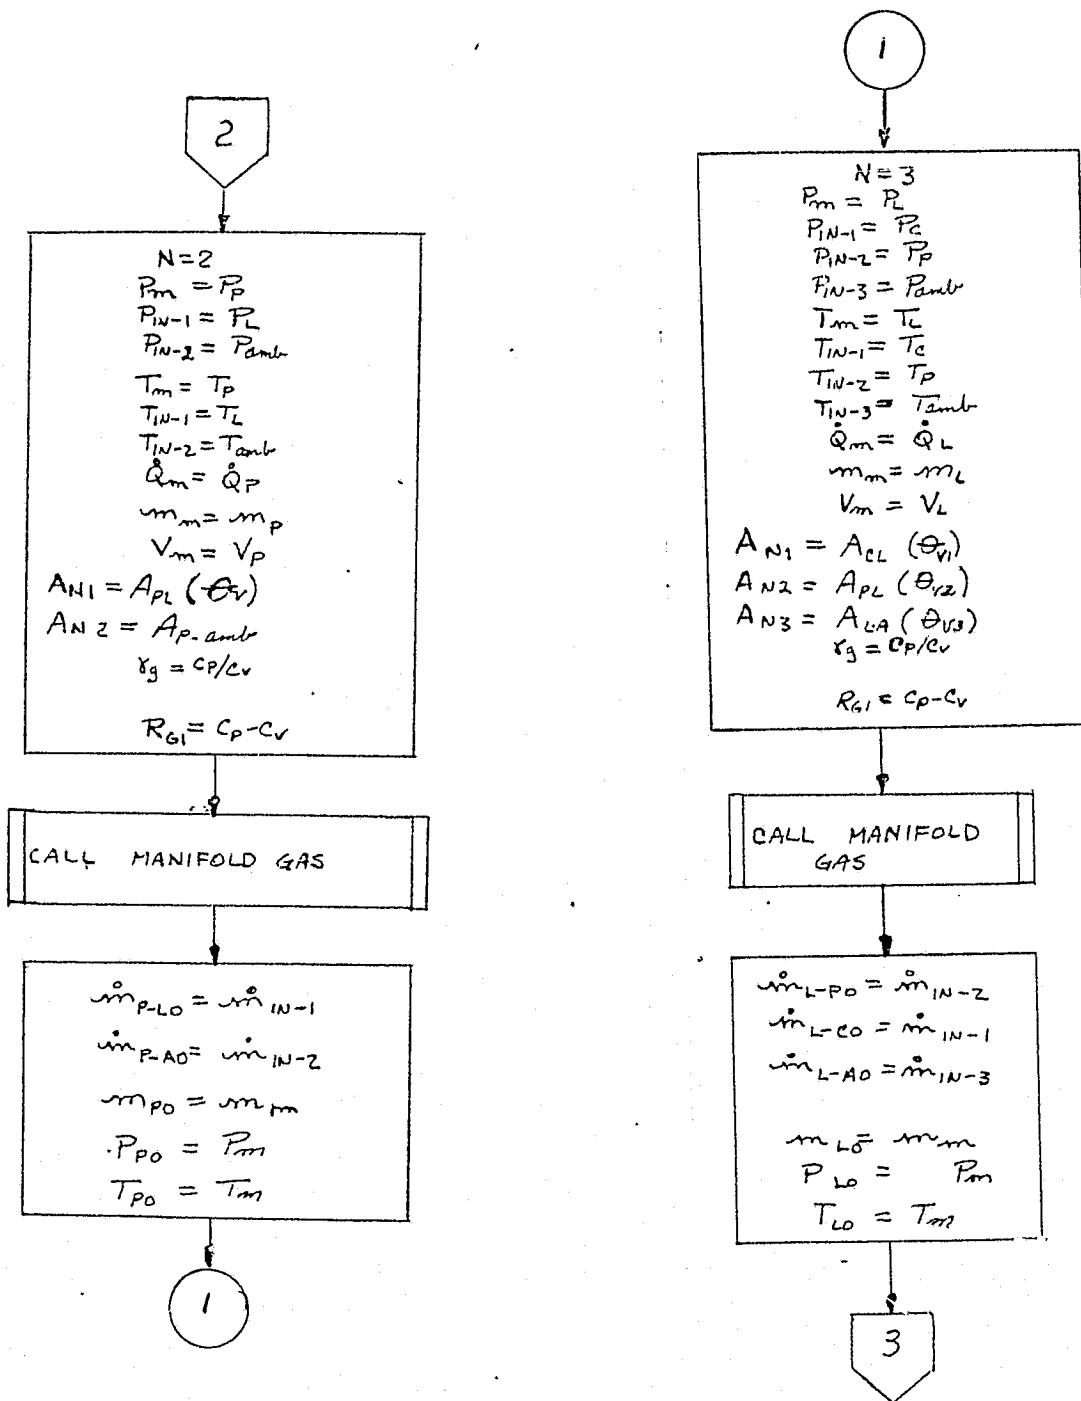 2
N=2
Pm = Pp
PIN-1 = PL
PIN-2 = Pamb
Tm = Tp
TIN-1 = TL
TIN-2 = Tamb
Q̇m = Q̇p
mm = mp
Vm = Vp
AN1 = APL (θv)
AN2 = AP-amb
γg = CP/CV
RG1 = CP-CV
CALL MANIFOLD GAS
ṁP-LO = ṁIN-1
ṁP-AO = ṁIN-2
mPO = mm
PPO = Pm
TPO = Tm
1
1
N=3
Pm = PL
PIN-1 = PC
PIN-2 = PP
PIN-3 = Pamb
Tm = TL
TIN-1 = TC
TIN-2 = TP
TIN-3 = Tamb
Q̇m = Q̇L
mm = mL
Vm = VL
AN1 = ACL (θV1)
AN2 = APL (θV2)
AN3 = ALA (θV3)
γg = CP/CV
RG1 = CP-CV
CALL MANIFOLD
GAS
ṁL-PO = ṁIN-2
ṁL-CO = ṁIN-1
ṁL-AO = ṁIN-3
mLO = mm
PLO = Pm
TLO = Tm
3